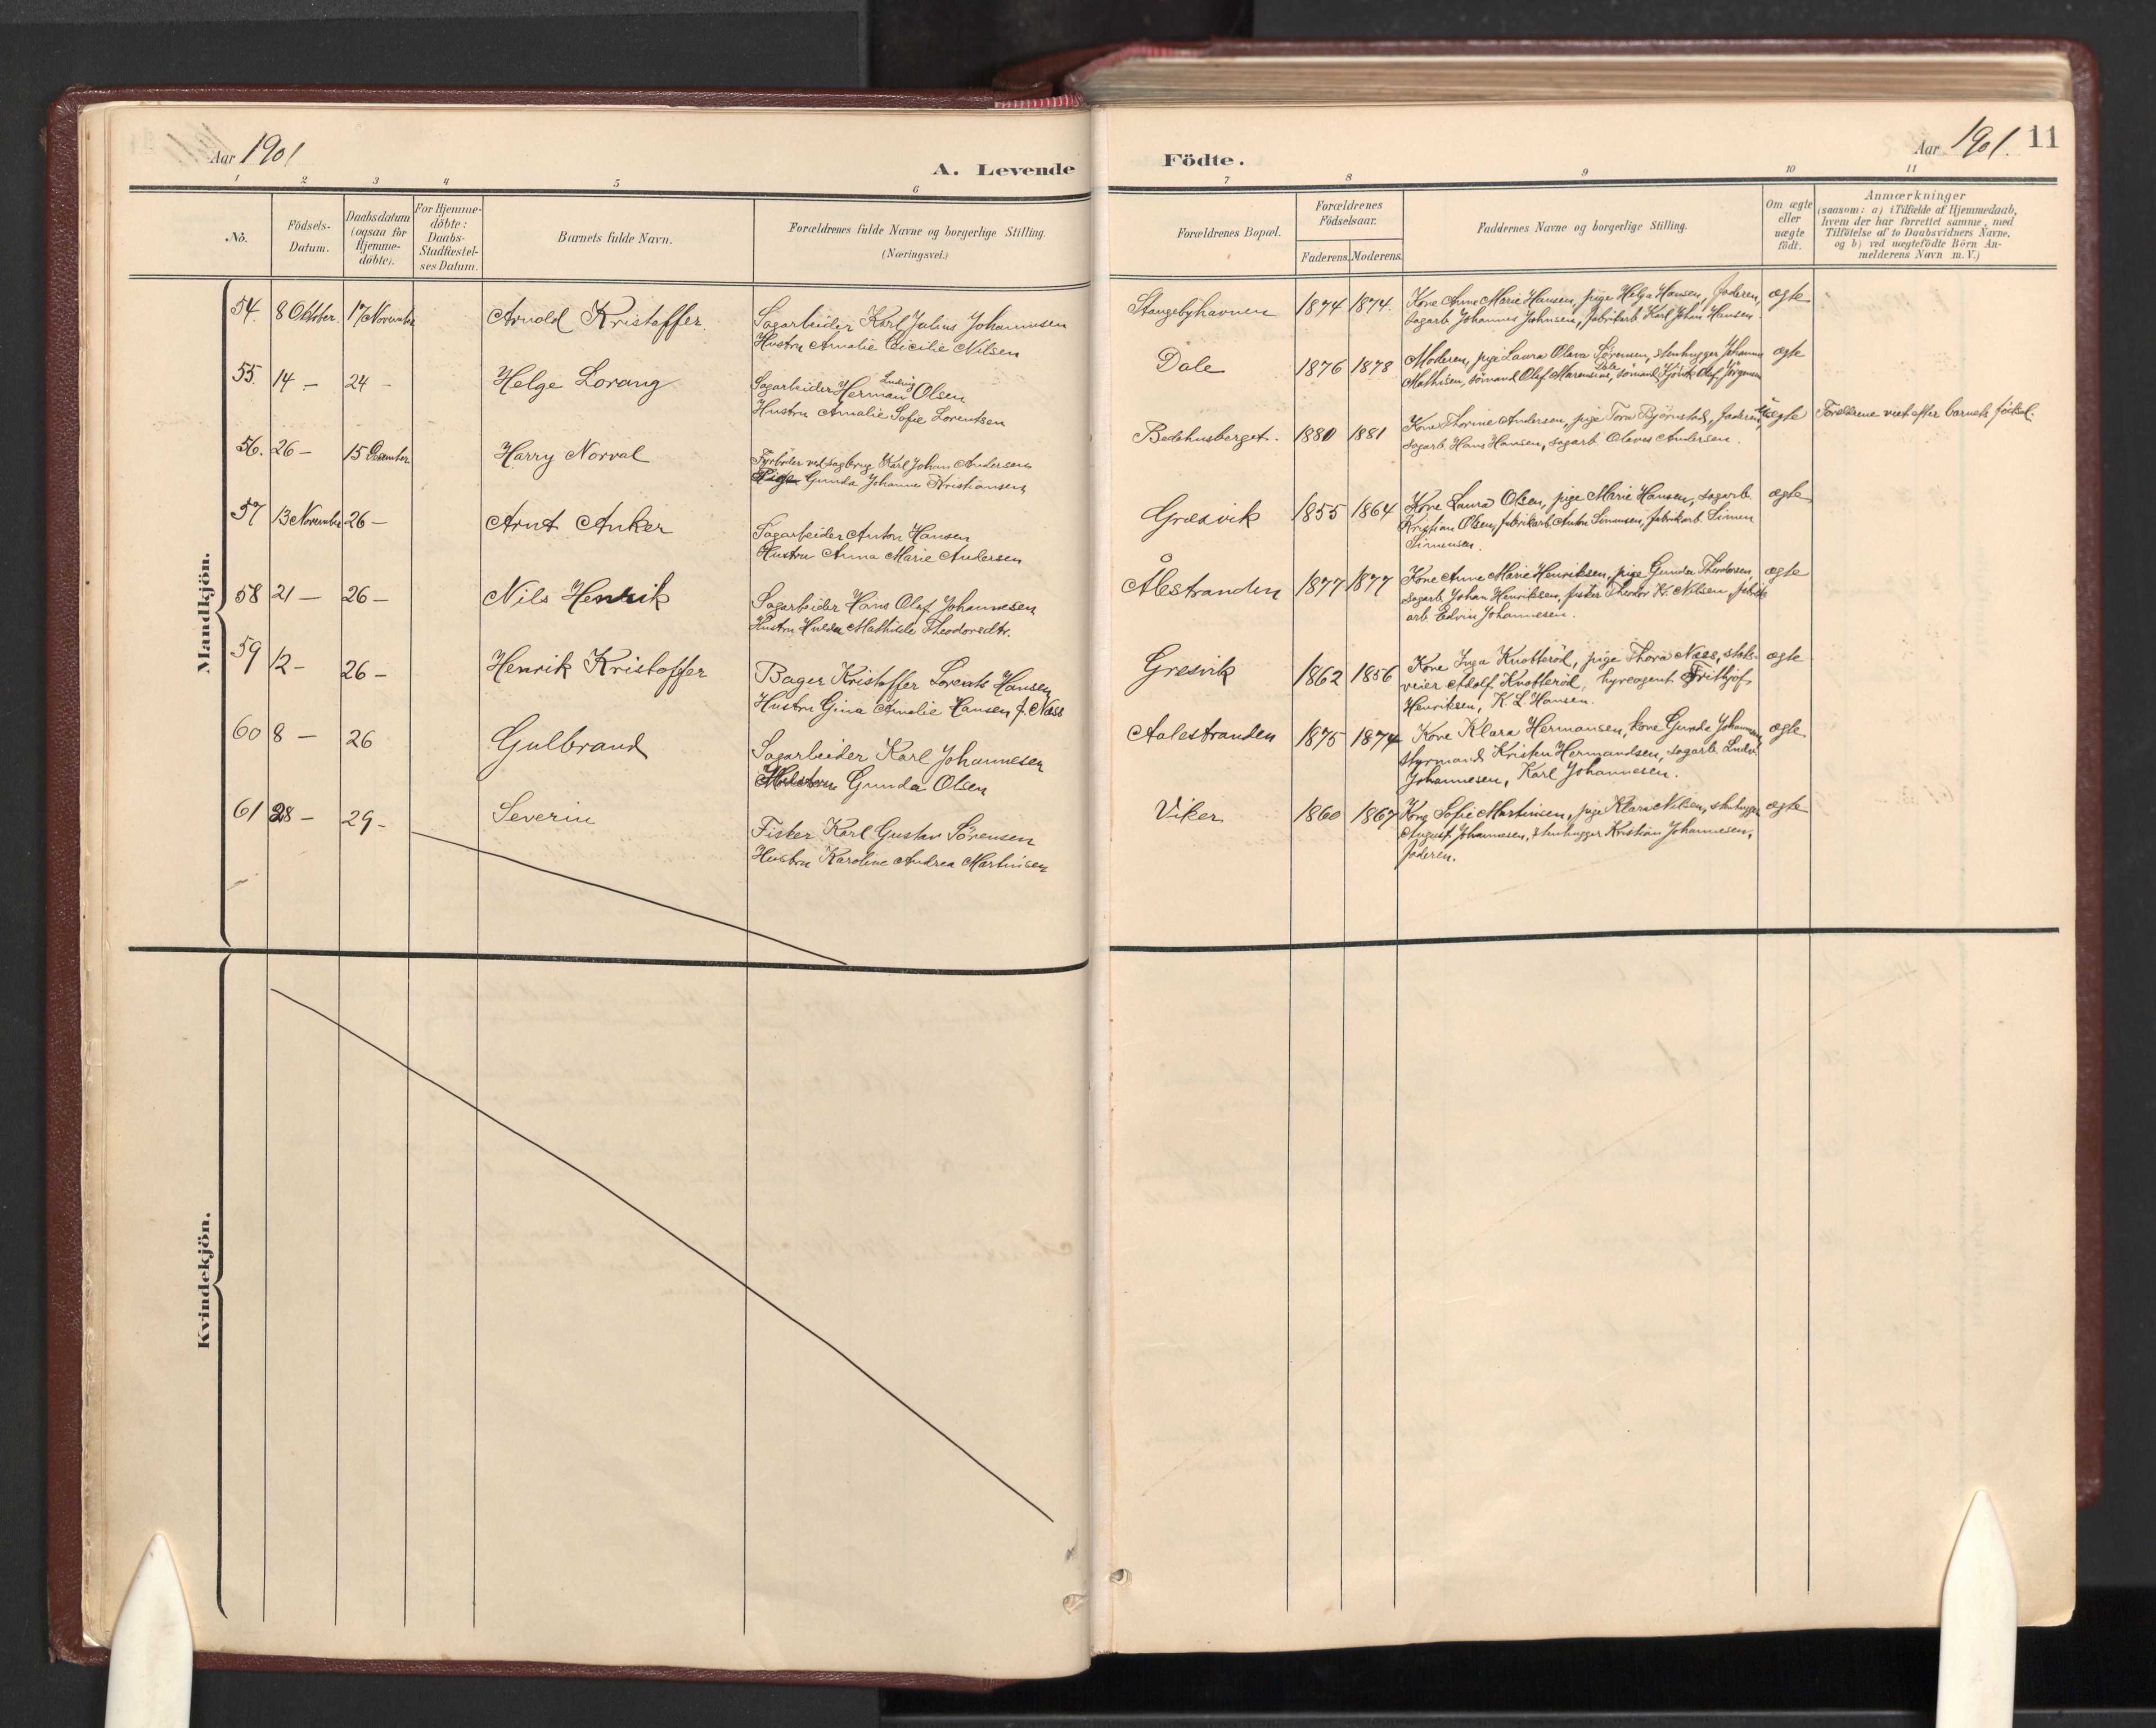 Aar 1901
A. Levende
1 2 3 4 5 6
No.
Födsels-
Datum.
Daabsdatum
(ogsaa for
Hjemme-
döbte).
For Hjemme-
döbte:
Daabs-
Stadfæstel-
ses Datum.
Barnets fulde Navn.
Forældrenes fulde Navne og borgerlige Stilling.
(Næringsvei.)
Mandkjön.
54. 8 Oktber. 17 November Arnold Kristoffer. Sagarbeider Karl Julius Johannesen
Hustru Amalie Cicilie Nilsen
55. 14 – 24 – Helge Lorang Sagarbeider Herman Ludvig Olsen
Hustru Amalie Sofie Lorentsen
56. 26 – 15 Desember Harry Norval Fyrböter ved sagbrug Karl Johan Andersen
Pige Gunda Johanne Kristiansen
57 13 November 26 – Arnt Anker Sagarbeider Anton Hansen
Hustru Anna Marie Andersen
58 21 – 26 – Nils Henrik Sagarbeider Hans Olaf Johannesen
Hustru Hulda Mathilde Theodorsdtr.
59 12 – 26 – Henrik Kristoffer Bager Kristoffer Lorents Hansen
Hustru Gina Amalie Hansen f. Næss
60 8 – 26 Gulbrand Sagarbeider Karl Johannesen
Gunda Olsen
61 28 – 29 – Severin Fisker Karl Gustav Sörensen
Hustru Karoline Andrea Martinsen
Kvindekjön.
Födte.
Aar 1901. 11
7 8 9 10 11
Forældrenes Bopæl.
Forældrenes
Födselsaar.
Faderens. Moderens.
Faddernes Navne og borgerlige Stilling.
Om ægte
eller
uægte
födt.
Anmærkninger
(saasom: a) i Tilfælde af Hjemmedaab,
hvem der har forrettet samme, med
Tilföielse af to Daabsvidners Navne,
og b) ved uægtefödte Börn An-
melderens Navn m. V.)
Stangebyhavnen 1874 1874. Kone Anne Marie Hansen, pige Helga Hansen, faderen, ægte
sagarb. Johannes Johnsen, fabrikarb Karl Johan Hansen
Dale 1876 1878 Moderen, pige Laura Olava Sørensen, stenhugger Johannes ægte
Mathisen, sömand Olaf Marensius Dale, sömand Olaf Jörgensen
Bedehusberget. 1880 1881 Kone Thorine Andersen, pige Tora Bjørnstad, faderen, Uægte Forældrene viet efter barnets födsel.
sagarb. Hans Hansen, sagarb. Olaves Andersen.
Græsvik 1855 1864 Kone Laura Olsen, pige Marie Hansen, sagarb. ægte
Kristian Olsen, fabrikarb. Anton Simensen, fabrikarb. Simen
Simensen.
Ålestranden 1877 1877 Kone Anne Marie Henriksen, pige Gunda Theodorsen, ægte
sagarb. Johan Henriksen, fisker Theodor Kr. Nilsen, fabrik
arb Edvin Johannesen.
Gresvik 1862 1856 Kone Inga Knotteröd, pige Thora Næss, stats- ægte
veier Adolf Knotteröd, hyreagent Frithjof
Henriksen, K. L. Hansen.
Aalestranden 1875 1874 Kone Klara Hermansen, kone Gunda Johannesen ægte
styrmand Kristen Hermandsen, sagarb. Ludv.
Johannesen, Karl Johannesen.
Viker 1860 1867 Kone Sofie Martinsen, pige Klara Nilsen, stenhugger ægte
August Johannesen, stenhugger Kristian Johannesen,
faderen.